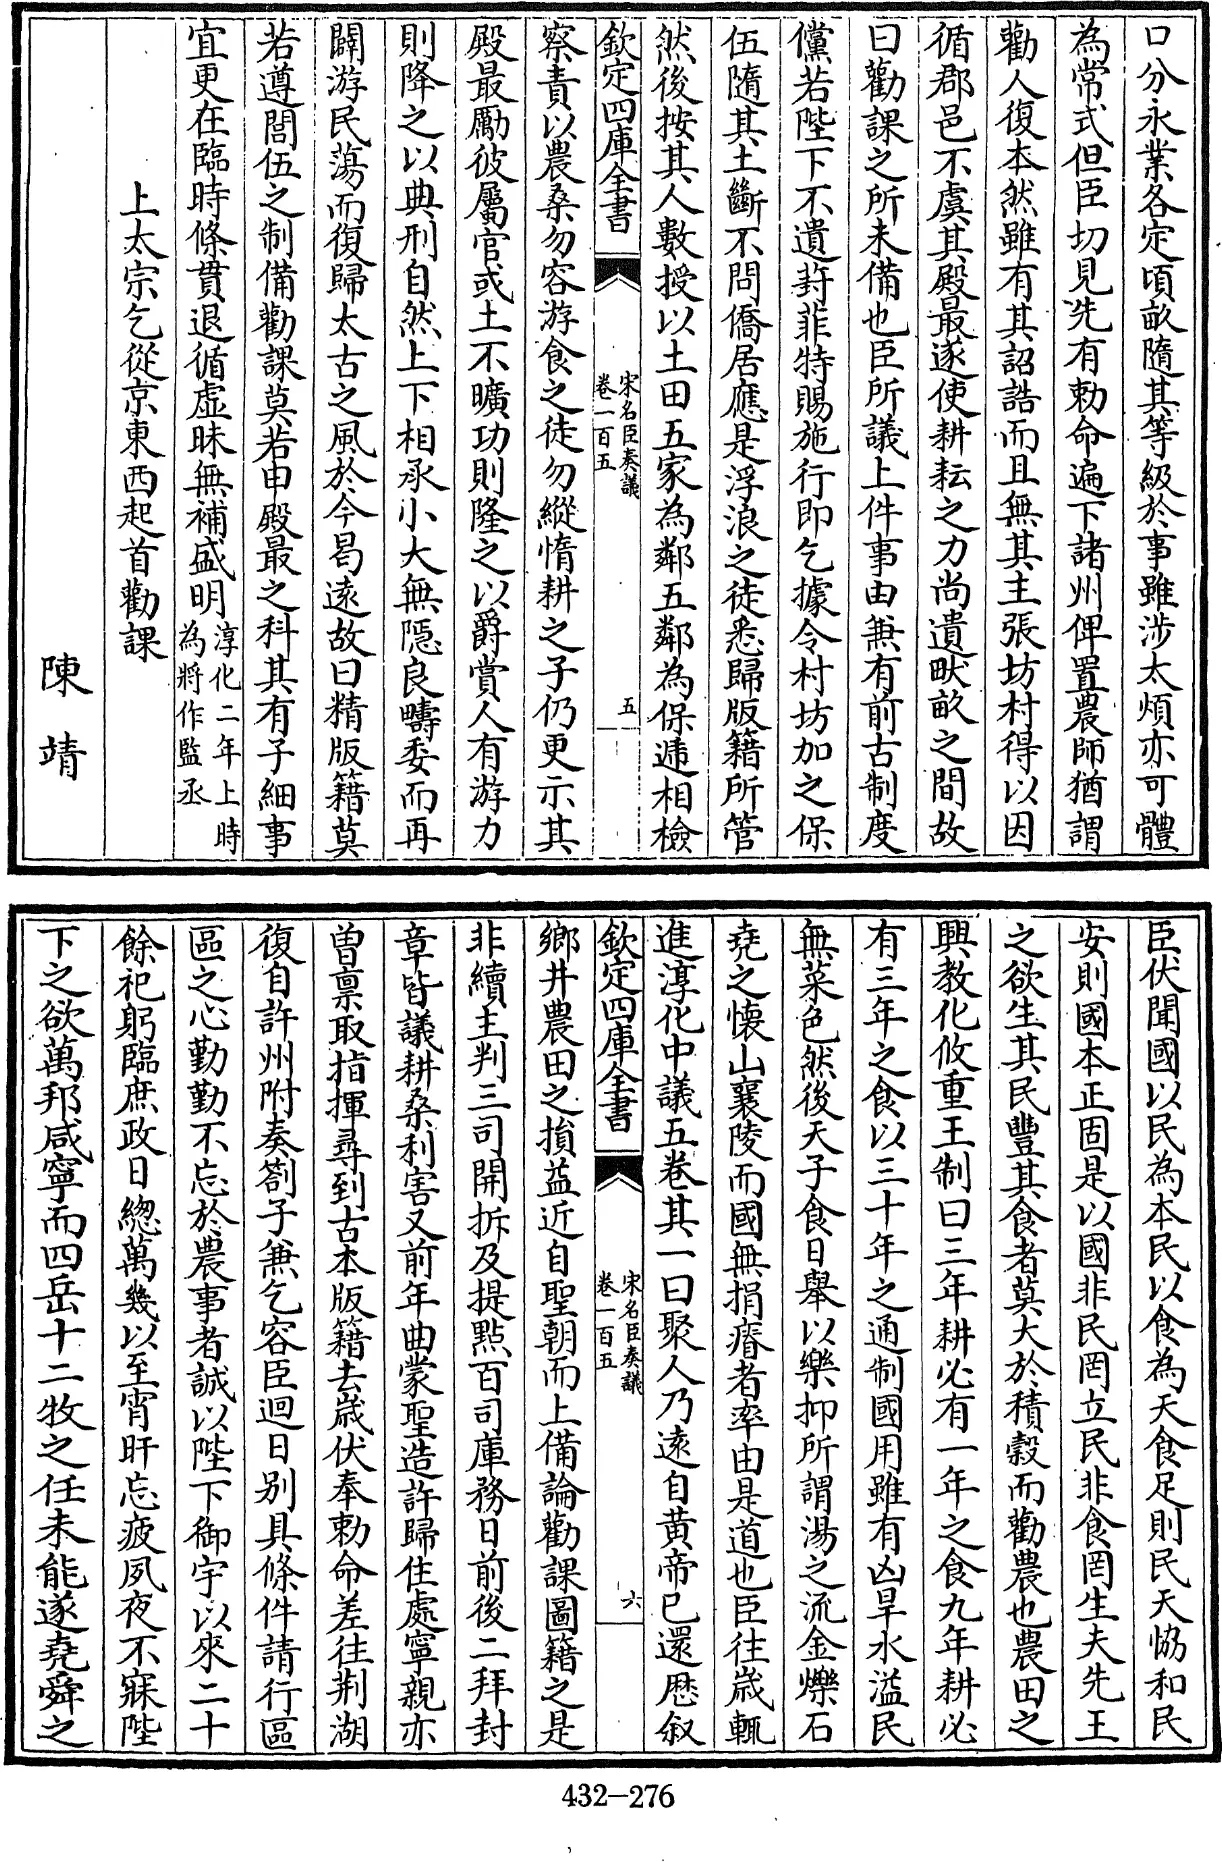 口分永業各定頃畝隨其等級於事雖涉太煩亦可體
為常式但臣切見先有勅命遍下諸州俾置農師猶謂
勸人復本然雖有其詔誥而且無其主張坊村得以因
循郡邑不虞其殿最遂使耕耘之力尚遺畎畝之間故
曰勸課之所未備也臣所議上件事由無有前古制度
儻若陛下不遺葑菲特賜施行即乞據令村坊加之保
伍隨其土斷不問僑居應是浮浪之徒悉歸版籍所管
然後按其人數授以土田五家為鄰五鄰為保遞相檢
欽定四庫全書
宋名臣奏議
卷一百五
五
察責以農桑勿容游食之徒勿縱惰耕之子仍更示其
殿最勵彼屬官或土不曠功則隆之以爵賞人有游力
則降之以典刑自然上下相承小大無隱良疇委而再
闢游民蕩而復歸太古之風於今曷遠故曰精版籍莫
若遵閭伍之制備勸課莫若申殿最之科其有子細事
宜更在臨時條貫退循虛昧無補盛明淳化二年上時
為將作監丞
上太宗乞從京東西起首勸課
陳靖
臣伏聞國以民為本民以食為天食足則民天恊和民
安則國本正固是以國非民罔立民非食罔生夫先王
之欲生其民豐其食者莫大於積穀而勸農也農田之
興教化攸重王制曰三年耕必有一年之食九年耕必
有三年之食以三十年之通制國用雖有凶旱水溢民
無菜色然後天子食日舉以樂抑所謂湯之流金爍石
堯之懐山襄陵而國無捐瘠者率由是道也臣往歲輒
進淳化中議五卷其一曰聚人乃遠自黄帝已還歷叙
欽定四庫全書
宋名臣奏議
卷一百五
六
鄉井農田之損益近自聖朝而上備論勸課圖籍之是
非續主判三司開拆及提點百司庫務日前後二拜封
章皆議耕桑利害又前年曲蒙聖造許歸住處寧親亦
曾禀取指揮尋到古本版籍去歲伏奉勅命差往荆湖
復自許州附奏劄子兼乞容臣迴日别具條件請行區
區之心勤勤不忘於農事者誠以陛下御宇以來二十
餘祀躬臨庶政日總萬幾以至宵旰忘疲夙夜不寐陛
下之欲萬邦咸寧而四岳十二牧之任未能遂堯舜之
432—276